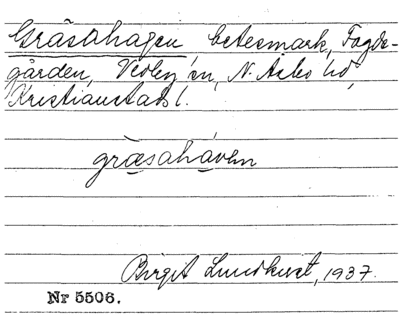 Gräsahagen, betesmark, Fogde-
gården, Vedby sn, N. Åsbo hd,
Kristianstads l.
græsahaven
Birgit Lundkvist, 1937.
Nr 5506.